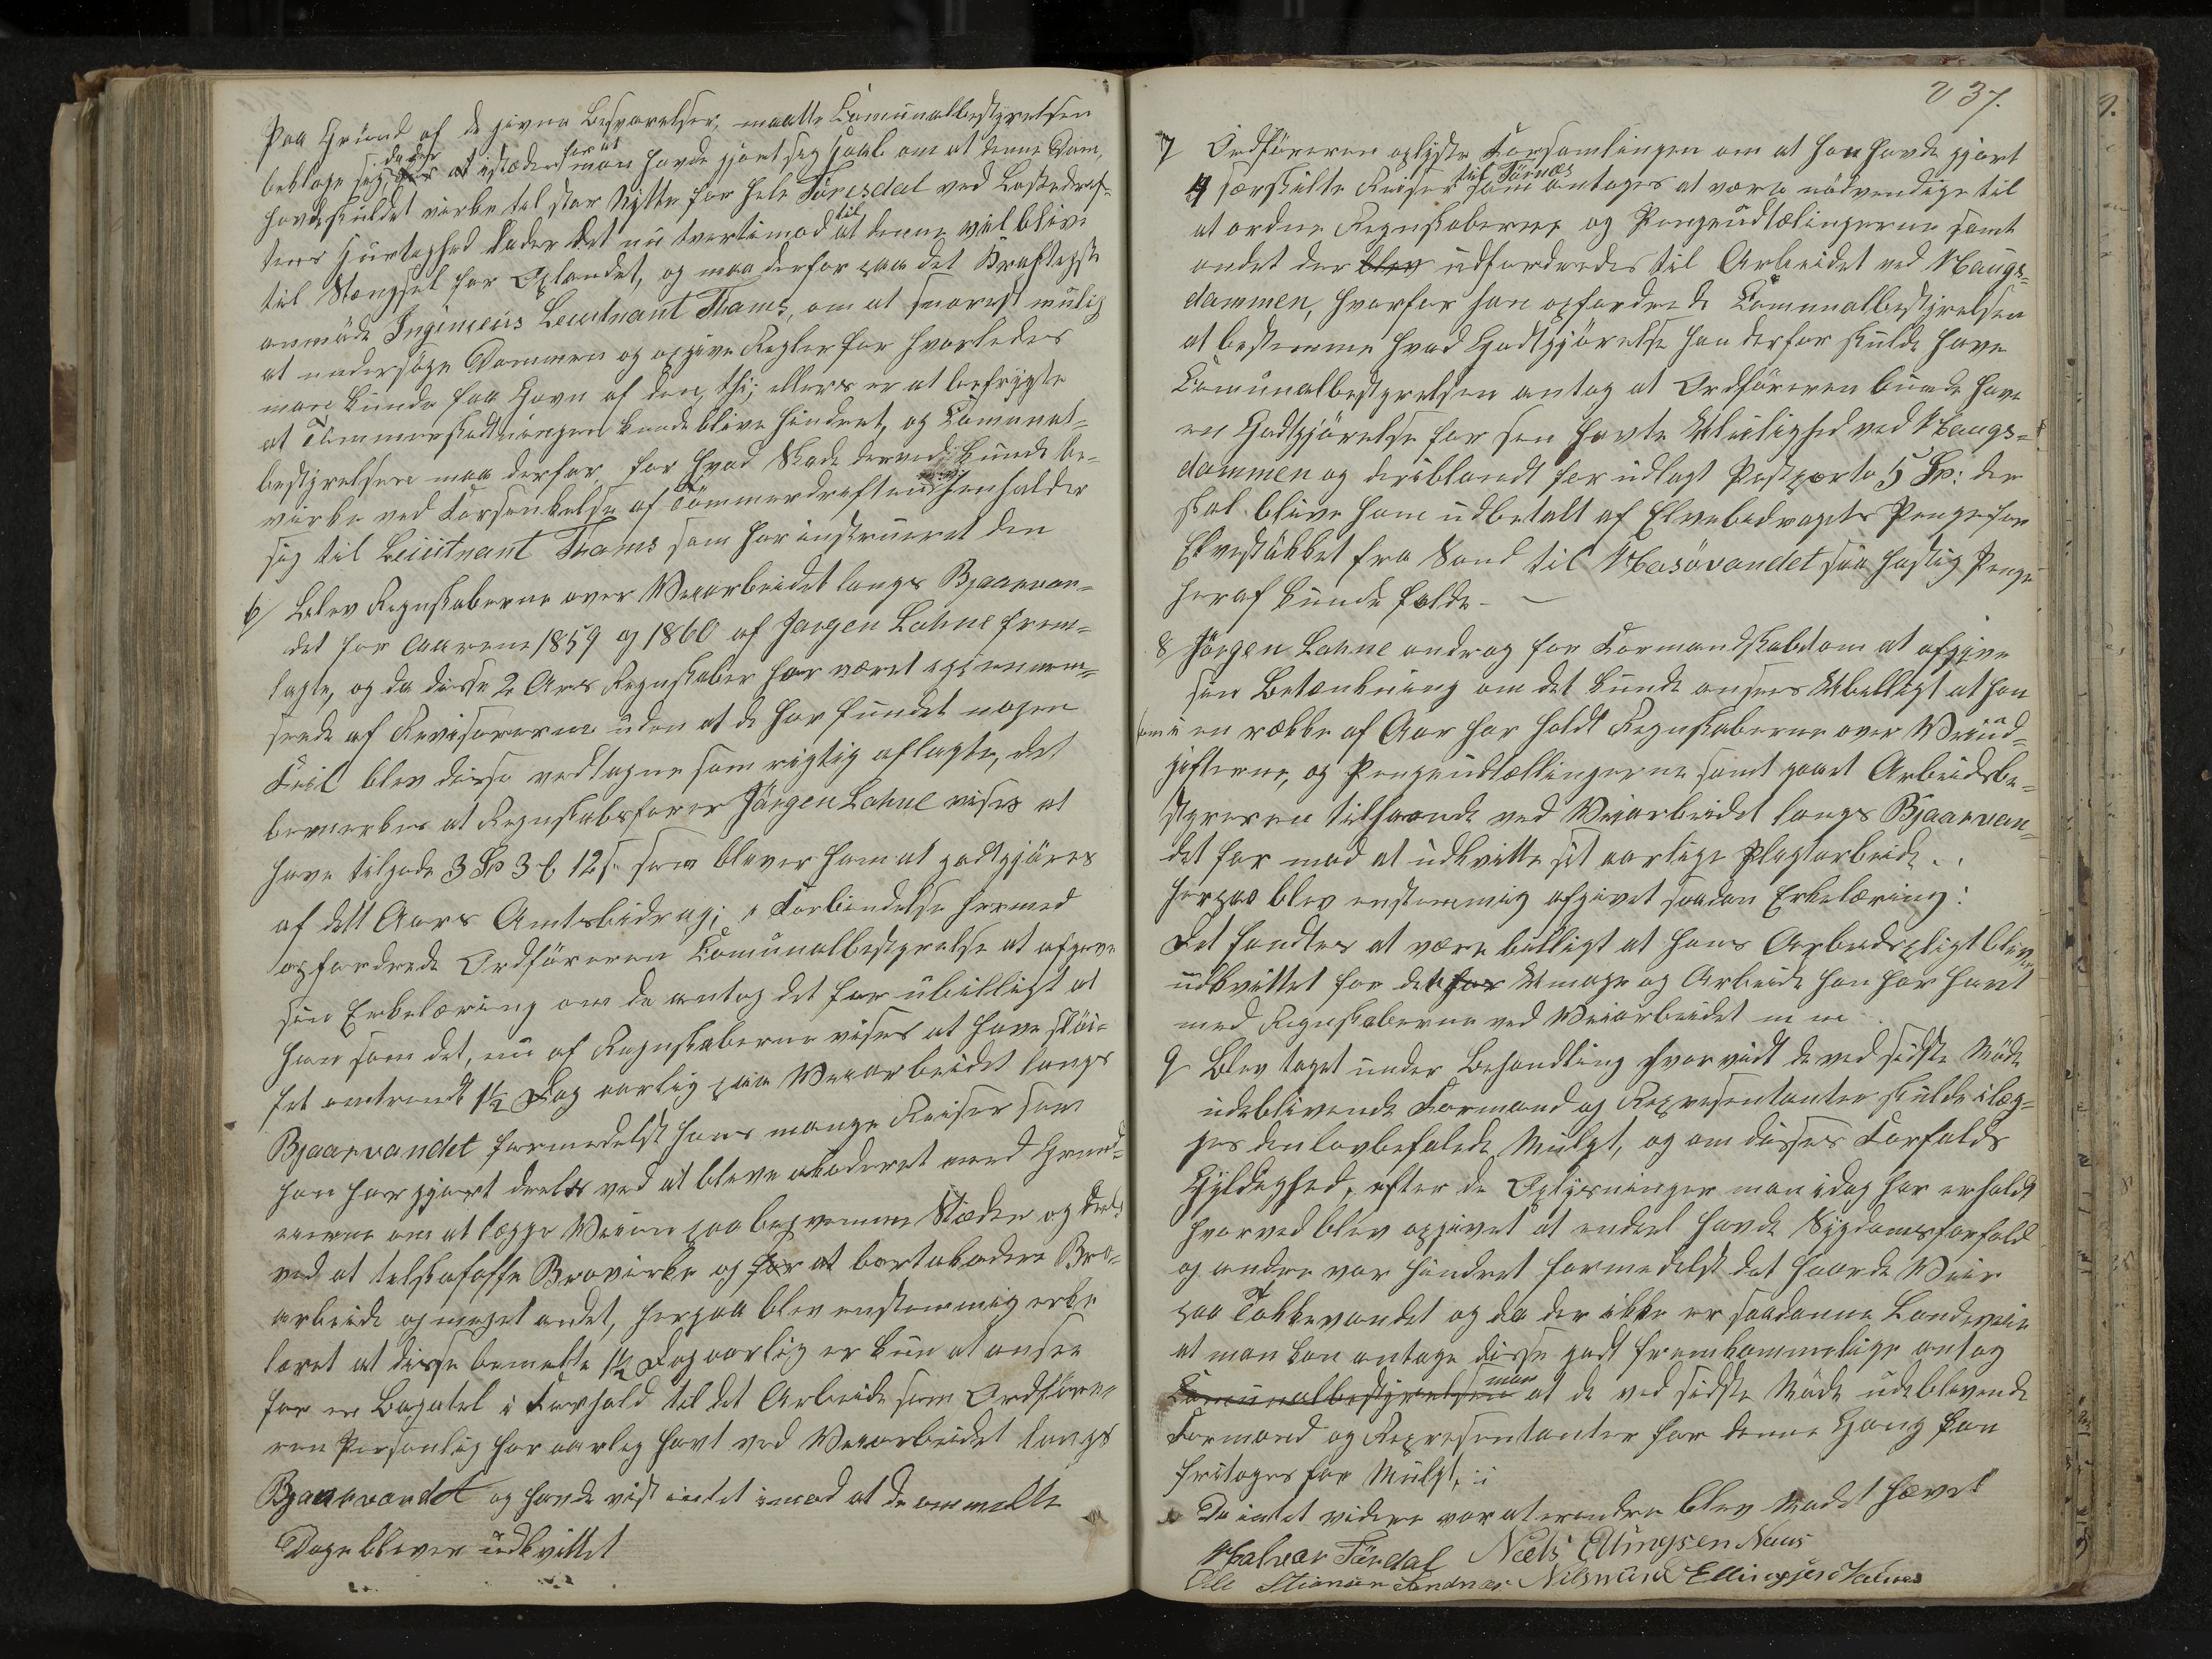 Paa Grund af de givne Besvarelser, maatte Comunalbestyrelsen
beklage sig, da der at istæden for at man havde gjort seg Haab om at denne Dam,
havde skuldet virke til stor Nytte for hele Törrisdal ved Loskedrif-
tens Hurtighed lader det nu tvertimod til at denne vil blive
til Stengsel for Oplandet, og maa derfor paa det Kraftigste
anmode Ingenieur Leuutnant Thams, om at snarest mulig
at undersöge Dammen og opgive Regler for hvorledes
man kunde faa Gavn af den, thi; ellers er at befrygte
at Tömmerflødningen kunde blive hindret, og Comunal-
bestyrelsen maa derfor, for hvad Skade derved kunde be-
virke ved Forsenkelse af Tömmerdriften henholder
sig til Leuutnant Thams som har instrueret den
6/ Blev Regnskaberne over Veiarbeidet langs Bjaarvan-
det for Aarene 1859 og 1860 af Jørgen Lahne frem-
lagte, og da disse 2 Ars Regnskaber har været igjennem-
seede af Revisorerne uden at de har fundet nogen
Feil blev disse vedtagne som rigtig aflagte, det
bemerkes at Regnskabsfører Jörgen Lahne vises at
have tilgode 3 Sp 3 ʠ 12 s som bliver ham at godtgjöres
af dett Aars Amtsbidrag; i Forbindelse hermed
opfordrede Ordföreren Comunalbestyrelse at afgive
sin Erkelæring om de antog det for ubilligt at
han som det, nu af Regnskaberne vises at have slöi-
fet omtrendt 1½ Dag aarlig paa Veiarbeidet langs
Bjaarvandet formedelst hans mange Reiser som
han har gjort deels ved at blive akoderet med Grund-
eierne om at lægge Veien paa beqvemme Stæder og deels
ved at telskafaffe Brovirke og for at bortakodere Bro-
arbeide og meget andet, herpaa blev enstemmig erke
læret at disse bemelte 1½ Dag aarlig er kun at ansee
for en Bagatel i Forhold til det Arbeide som Ordföre-
ren Personlig har aarlig havt ved Veiarbeidet langs
Bjaarvandet og havde vist intet imod at de ommelte
Dage bliver udkvittet
237.
7 Ordföreren oplyste Forsamlingen om at han havde gjort
4 særskilte Reiser til Törnæs som antages at være nödvendige til
at ordne Regnskaberne og Pengeudtælingerne samt
andet der blev udfordredes til Arbeidet ved Haugs-
dammen, hvorfor han opfordrede Comunalbestyrelsen
at bestemme hvad Godtgjörelse han derfor skulde have
Comunalbestyrelsen antog at Ordföreren burde have
en Godtgjörelse for sen havte Uleilighed ved Haugs-
dammen og deriblandt for udlagt Postporto 5 Sp: der
skal blive ham udbetalt af Elvebidragets Penge for
Elvestykket fra Sand til Næsövandet saa hastig Penge
heraf kunde falde. —
8 Jörgen Lahne androg for Formandskabet om at afgive
sin Betænkning om det kunde ansees Ubilligt at han
som i en række af Aar har holdt Regnskaberne over Veiud-
gifterne, og Pengeudtællingerne samt gaaet Arbeidsbe-
styreren tilhaande ved Veiarbeidet langs Bjaarvan-
det for mod at udkvitte sit aarlige Pligtarbeide.
Herpaa blev enstemmig afgivet saadan Erkelæring:
Det fandtes at være billigt at hans Arbeidspligt blev
udkvittet for det for Umage og Arbeide han har havt
med Regnskaberne ved Veiarbeidet m m
9 Blev taget under Behandling hvorvidt de ved sidste Möde
udeblivende Formænd og Repræsentanter skulde ilæg-
ges den lovbefalede Mulgt, og om disses Forfalds
Gyldighed, efter de Oplysninger man idag har erholdt
hvorved blev opgivet at endeel havde Sygdomsforfald
og andre var hindret formedelst det haarde Veir
paa Tokkevandet og da der ikke er saadanne Landeveie
at man kan antage disse godt fremkommelige antog
Comunalbestyrelsen man at de ved sidste Möde udeblivende
Formænd og Repræsentanter for denne Gang kan
fritages for Mulgt. :
Da intet videre var at erendre blev Mødet hævet
Halvor Töndal Niels Ellingsen Naas
Ole Stianson Sandnæs Nelsnund Ellingsen Valnes